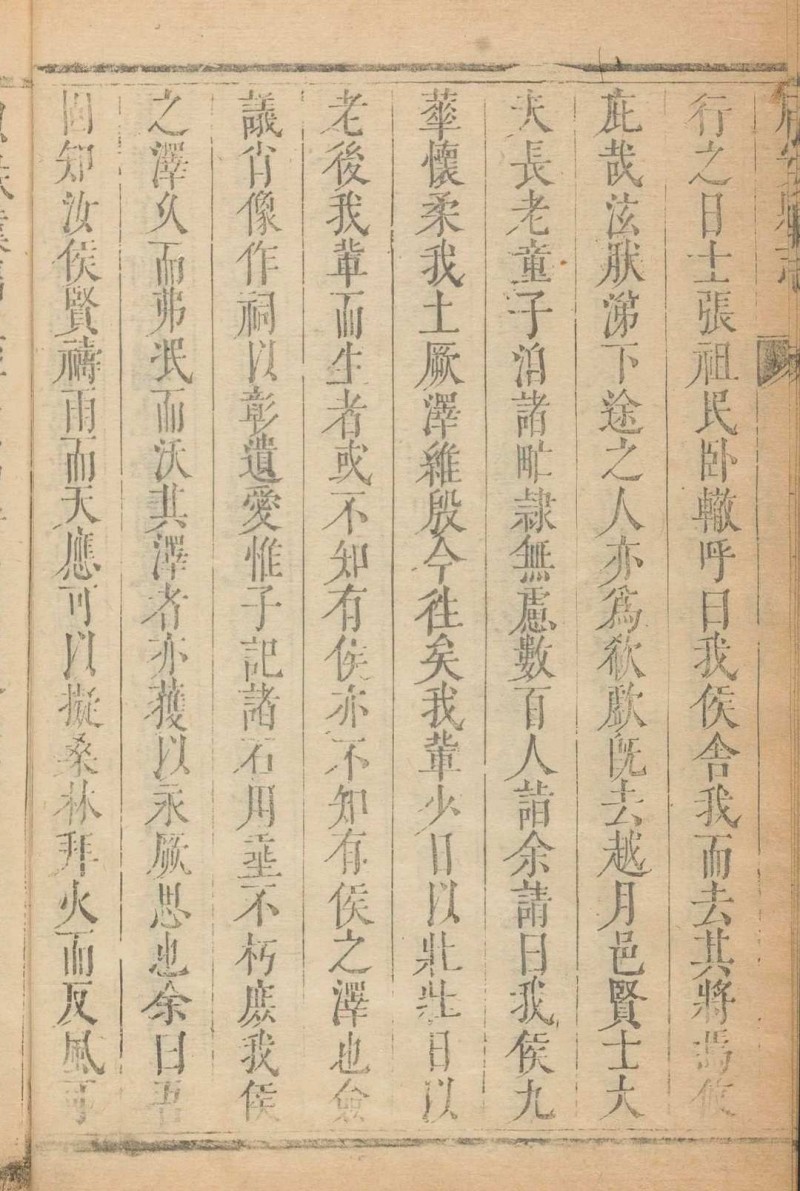 行之日士張祖民卧轍呼曰我侯舍我而去其將焉攸
庇哉泫然涕下途之人亦爲欷歔既去越月邑賢士大
夫長老童子洎諸甿隷無慮數百人詣余請曰我侯九
莘懷柔我土厥澤維殷今徃矣我輩少日以壯壯日以
老後我輩而生者或不知有侯亦不知有侯之澤也僉
議肖像作祠以彰遺愛惟子記諸石用埀不朽庶我侯
之澤久而弗泯而沃其澤者亦獲以永厥思也余曰吾
固知汝侯賢禱雨而天應可以擬桑林拜火而反風可